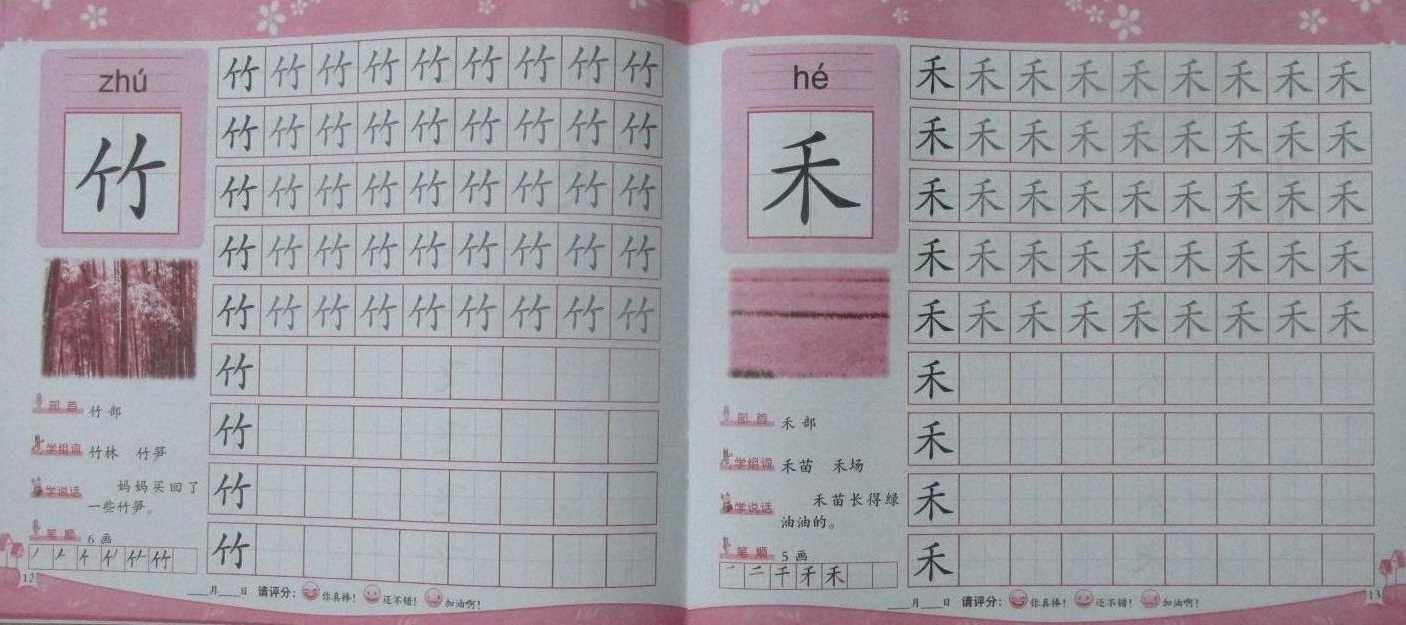 zhú
竹
竹 竹 竹 竹 竹 竹 竹 竹 竹
竹 竹 竹 竹 竹 竹 竹 竹 竹
竹 竹 竹 竹 竹 竹 竹 竹 竹
竹 竹 竹 竹 竹 竹 竹 竹 竹
竹 竹 竹 竹 竹 竹 竹 竹 竹
竹
竹
竹
竹
部首 竹部
学组词 竹林 竹笋
学说话 妈妈买回了
一些竹笋。
笔顺 6画
竹
12
月 日 请评分: 你真棒! 还不错! 加油啊!
hé
禾
禾 禾 禾 禾 禾 禾 禾 禾 禾
禾 禾 禾 禾 禾 禾 禾 禾 禾
禾 禾 禾 禾 禾 禾 禾 禾 禾
禾 禾 禾 禾 禾 禾 禾 禾 禾
禾 禾 禾 禾 禾 禾 禾 禾 禾
禾
禾
禾
禾
部首 禾部
学组词 禾苗 禾场
学说话 禾苗长得绿
油油的。
笔顺 5画
一 二 千 禾 禾
月 日 请评分: 你真棒! 还不错! 加油啊!
13